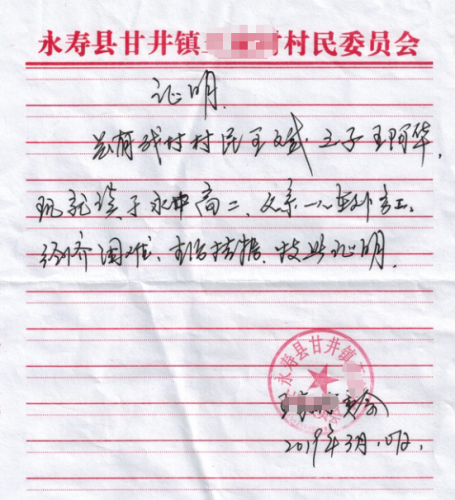 永寿县甘井镇 村民委员会
证明
兹有我村村民王文斌之子王阿华,
现就读于永中高二,父亲一人在外务工,
经济困难、生活拮据,特此证明
永寿县甘井镇
委会
2019年3月 日.